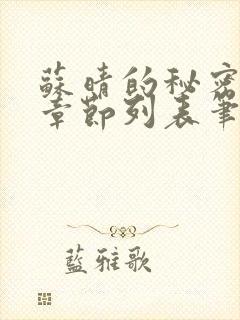 蘇晴的秘密
章節列表筆
藍雅歌